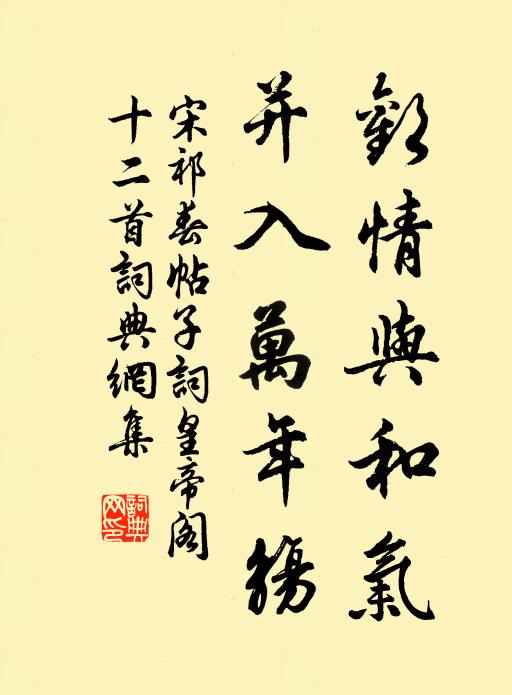 歡情與和氣
并入萬年觴
宋祁春帖子詞皇帝閣
十二首詞典網集
詞典网印